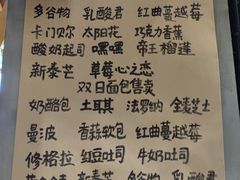 多谷物 乳酸君 红曲蔓越莓
卡门贝尔 太阳花 巧克力香蕉
酸奶起司 嘿嘿 帝王榴莲
新泰芒 草莓心之恋
双日面包售卖
奶酪包 土耳其 法罗纳 全麦芝士
曼波 香蒜软包 红曲蔓越莓
修格拉 红豆吐司 牛奶吐司
新泰芒 多谷物 乳酸君